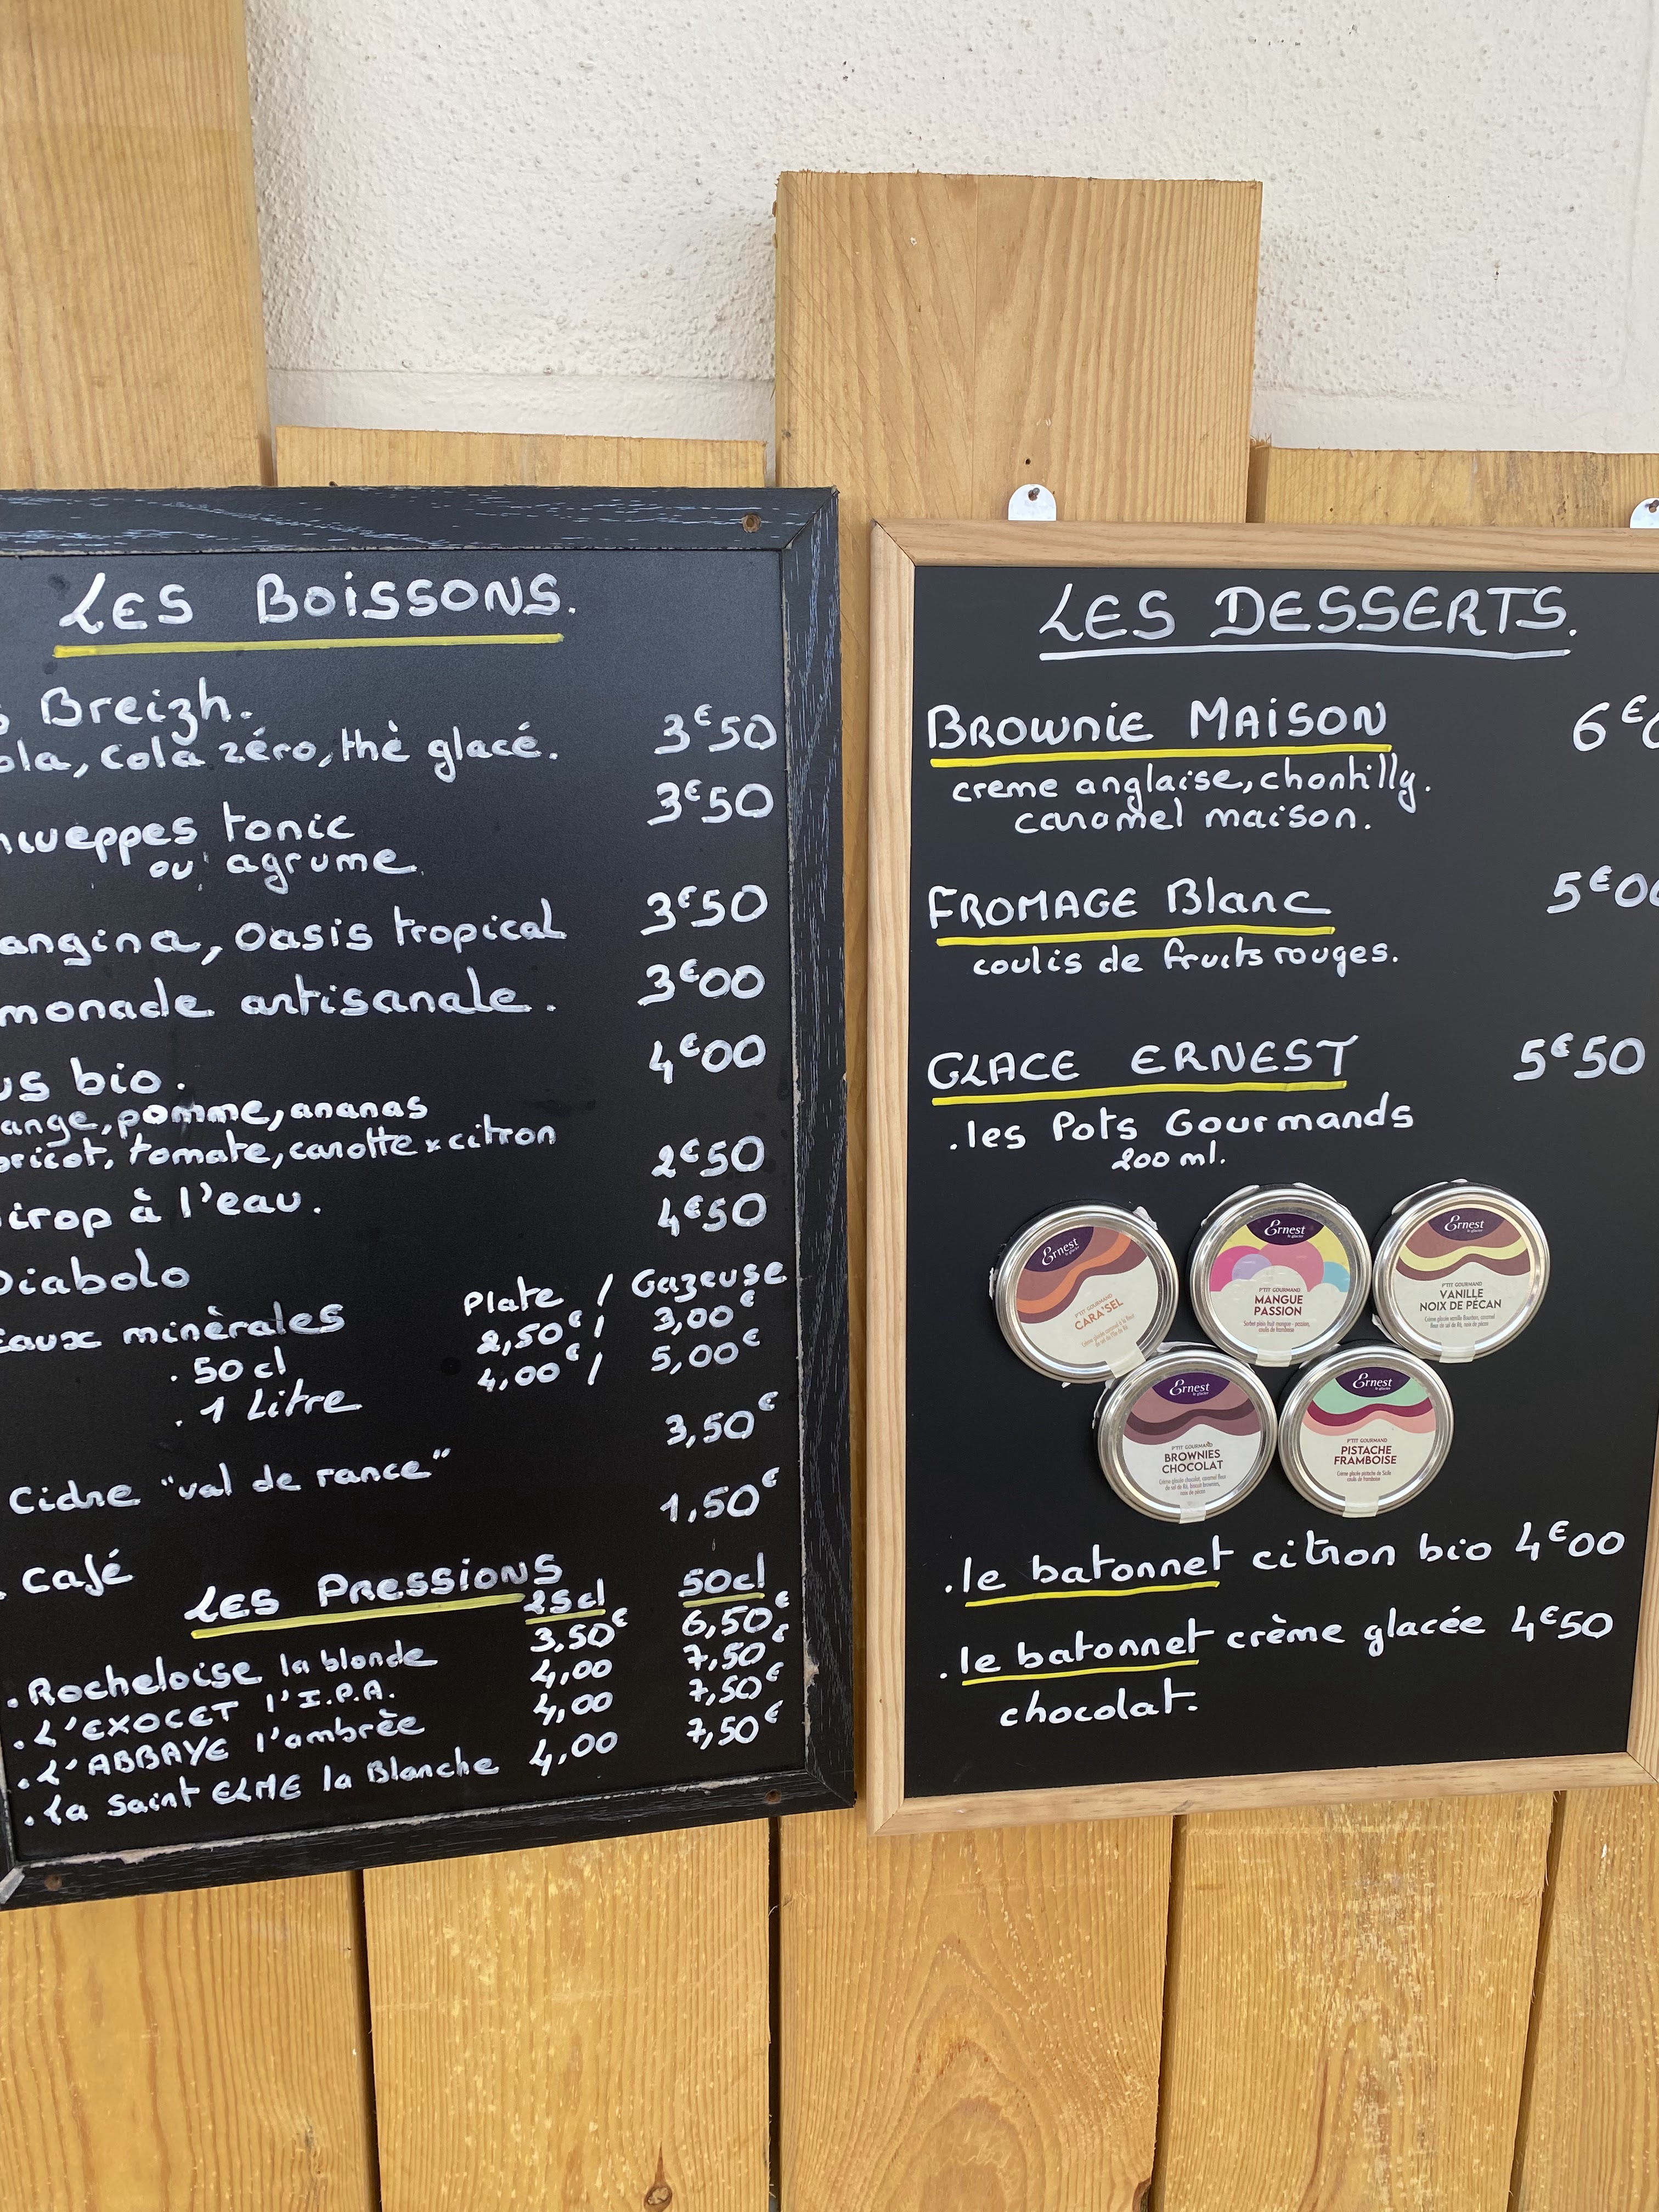 LES BOISSONS.
Breizh.
cola zéro, thè glacé. 3€50
tonic 3€50
ou agrume
Oasis tropical 3€50
artisanale. 3€00
bio. 4€00
pomme, ananas
tomate, carotte x citron
à l'eau. 2€50
Diabolo 4€50
Eaux minèrales Plate / Gazeuse
. 50 cl 2,50€ / 3,00€
. 1 Litre 4,00€ / 5,00€
Cidre "val de rance" 3,50€
. Café 1,50€
LES PRESSIONS 25cl 50cl
. Rocheloise la blonde 3,50€ 6,50€
. L'EXOCET l'I.P.A. 4,00 7,50€
. L'ABBAYE l'ambrèe 4,00 7,50€
. La Saint ELME la Blanche 4,00 7,50€
LES DESSERTS.
BROWNIE MAISON 6€
creme anglaise, chantilly.
caramel maison.
FROMAGE Blanc 5€00
coulis de fruits rouges.
GLACE ERNEST 5€50
. les Pots Gourmands
200 ml.
Ernest
le glacier
P'TIT GOURMAND
CARA'SEL
Ernest
le glacier
P'TIT GOURMAND
MANGUE
PASSION
Ernest
le glacier
P'TIT GOURMAND
VANILLE
NOIX DE PÉCAN
Ernest
le glacier
P'TIT GOURMAND
BROWNIES
CHOCOLAT
Ernest
le glacier
P'TIT GOURMAND
PISTACHE
FRAMBOISE
. le batonnet citron bio 4€00
. le batonnet crème glacée 4€50
chocolat.